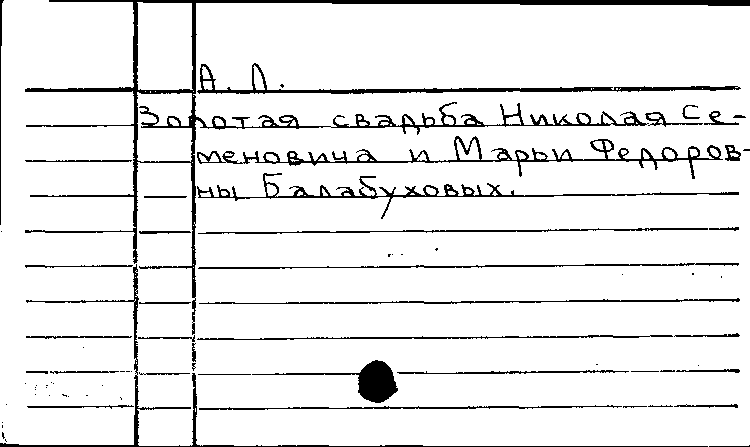 А. Л.
Золотая свадьба Николая Се-
меновича и Марьи Федоров-
ны Балабуховых.